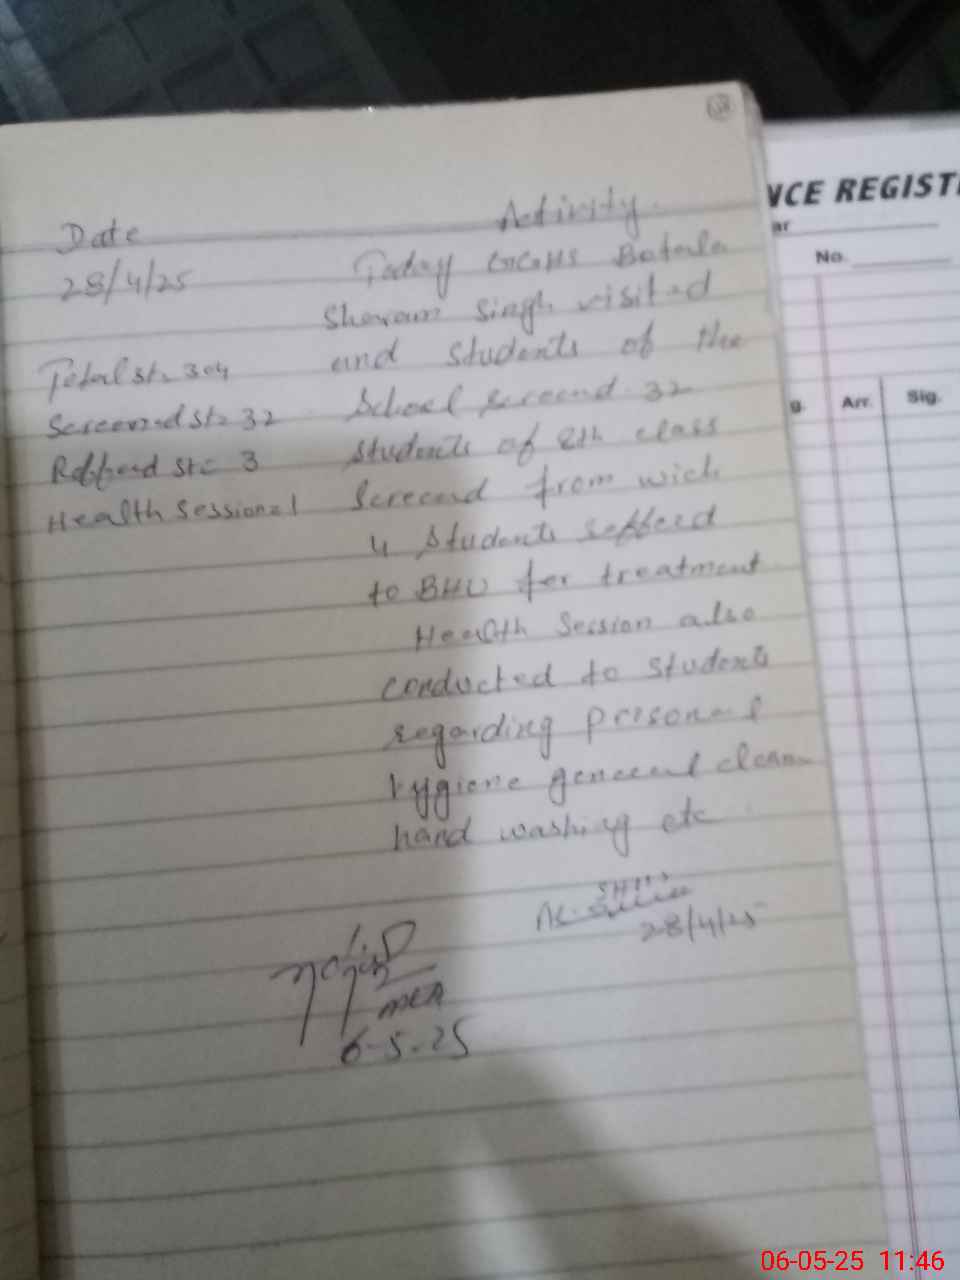 Date Activity
28/4/25 Today GGHS Batala
Sharam Singh visited
Total st. 304 and students of the
Screened st = 32 School screend. 32
Reffered st = 3 students of 8th class
Health Session = 1 Screened from wich
4 Students refferd
to BHU for treatment
Health Session also
conducted to students
regarding personal
hygiene general clean
hand washing etc
28/4/25
MEA
6-5-25
NCE REGIST
ar
No.
g. Arr. Sig.
06-05-25 11:46